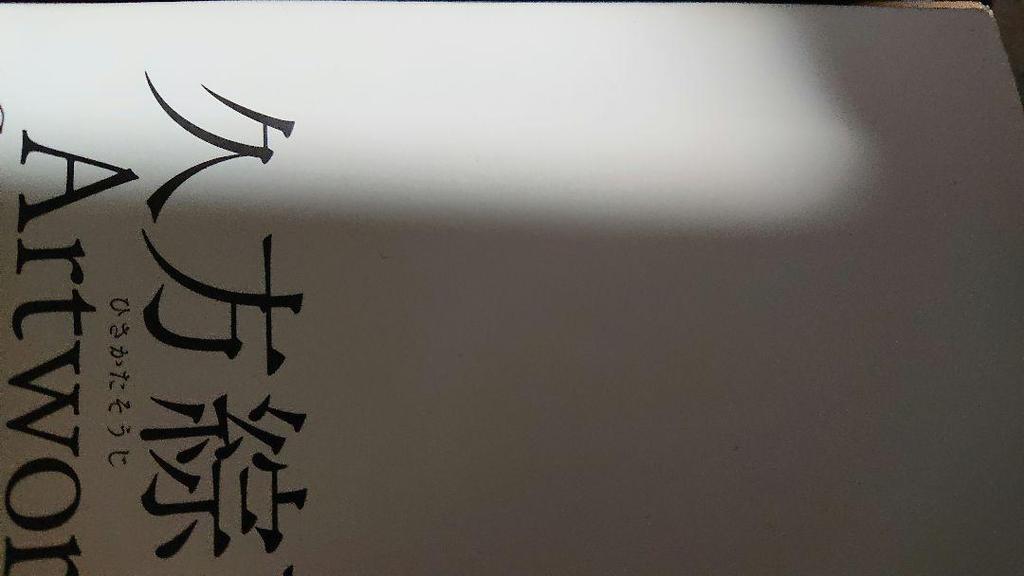 久方綜
ひさかたそうじ
Artwor